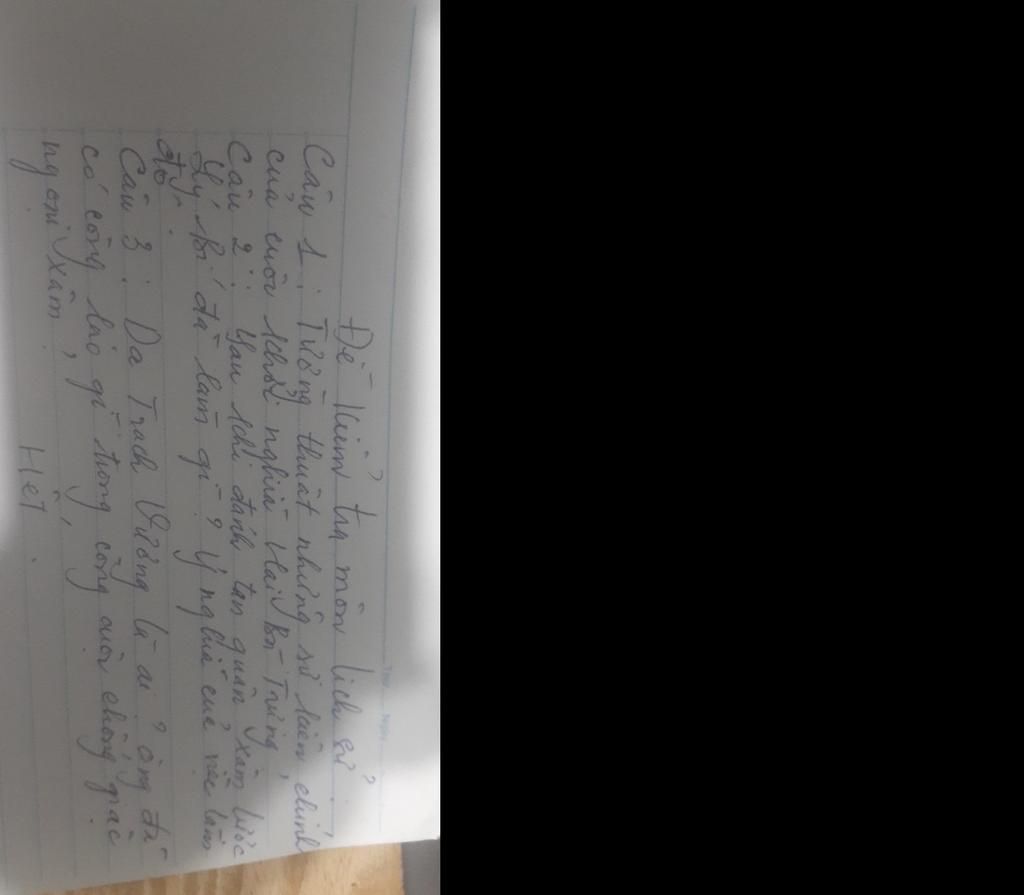 Đề kiểm tra môn lịch sử
Câu 1: Tường thuật những sự kiện chính
của cuộc khởi nghĩa Hai Bà Trưng,
Câu 2: Sau khi đánh tan quân xâm lược
Lý Bí đã làm gì? Ý nghĩa của việc làm
đó.
Câu 3: Dạ Trạch Vương là ai? ông đã
có công lao gì trong công cuộc chống giặc
ngoại xâm?
Hết.